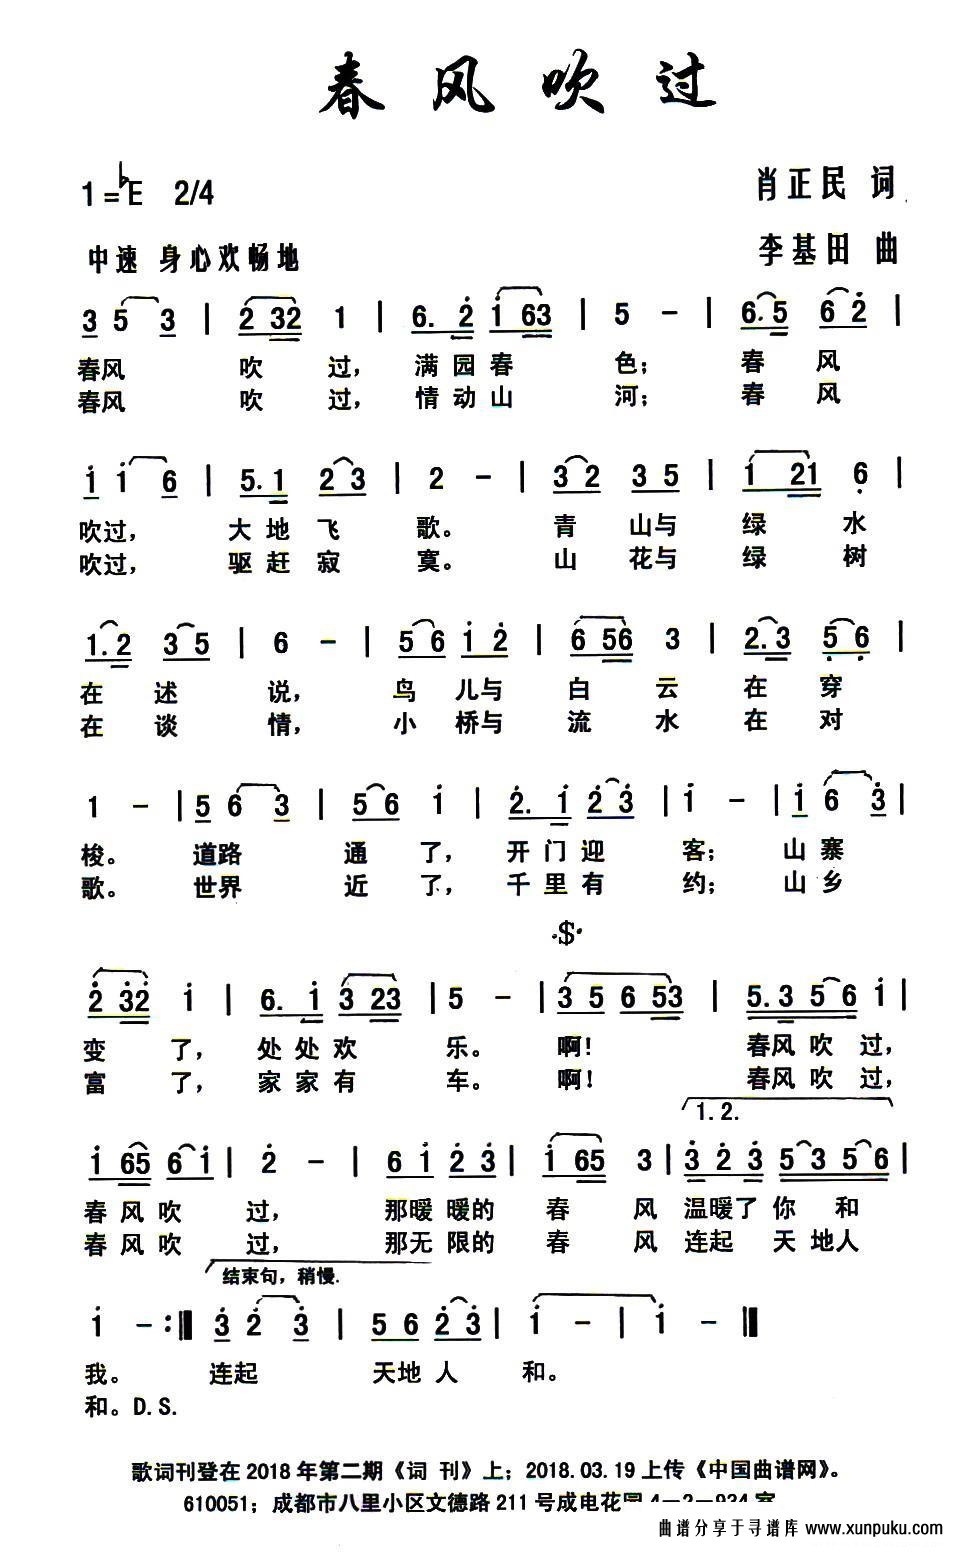 春风吹过
1=♭E 2/4 肖正民 词
中速 身心欢畅地 李基田 曲
3 5 3 | 2 32 1 | 6. 2 1 63 | 5 - | 6. 5 6 2 |
春风 吹 过, 满 园 春 色; 春 风
春风 吹 过, 情 动 山 河; 春 风
1 1 6 | 5. 1 2 3 | 2 - | 3 2 3 5 | 1 21 6 |
吹过, 大 地 飞 歌。 青 山与 绿 水
吹过, 驱 赶 寂 寞。 山 花与 绿 树
1. 2 3 5 | 6 - | 5 6 1 2 | 6 56 3 | 2. 3 5 6 |
在 述 说, 鸟 儿与 白 云 在 穿
在 谈 情, 小 桥与 流 水 在 对
1 - | 5 6 3 | 5 6 1 | 2. 1 2 3 | 1 - | 1 6 3 |
梭。 道路 通 了, 开 门 迎 客; 山 寨
歌。 世界 近 了, 千 里 有 约; 山 乡
·$·
2 32 1 | 6. 1 3 23 | 5 - | 3 5 6 53 | 5. 3 5 6 1 |
变 了, 处 处 欢 乐。 啊! 春风 吹 过,
富 了, 家 家 有 车。 啊! 春风 吹 过,
1.2.
1 65 6 1 | 2 - | 6 1 2 3 | 1 65 3 | 3 2 3 5 3 5 6 |
春 风 吹 过, 那暖 暖的 春 风 温暖了 你 和
春 风 吹 过, 那无 限的 春 风 连起 天 地人
结束句,稍慢.
1 - :‖ 3 2 3 | 5 6 2 3 | 1 - | 1 - ‖
我。 连起 天地 人 和。
和。D.S.
歌词刊登在2018年第二期《词 刊》上; 2018.03.19上传《中国曲谱网》。
610051; 成都市八里小区文德路211号成电花园4-2-934室
曲谱分享于寻谱库 www.xunpuku.com